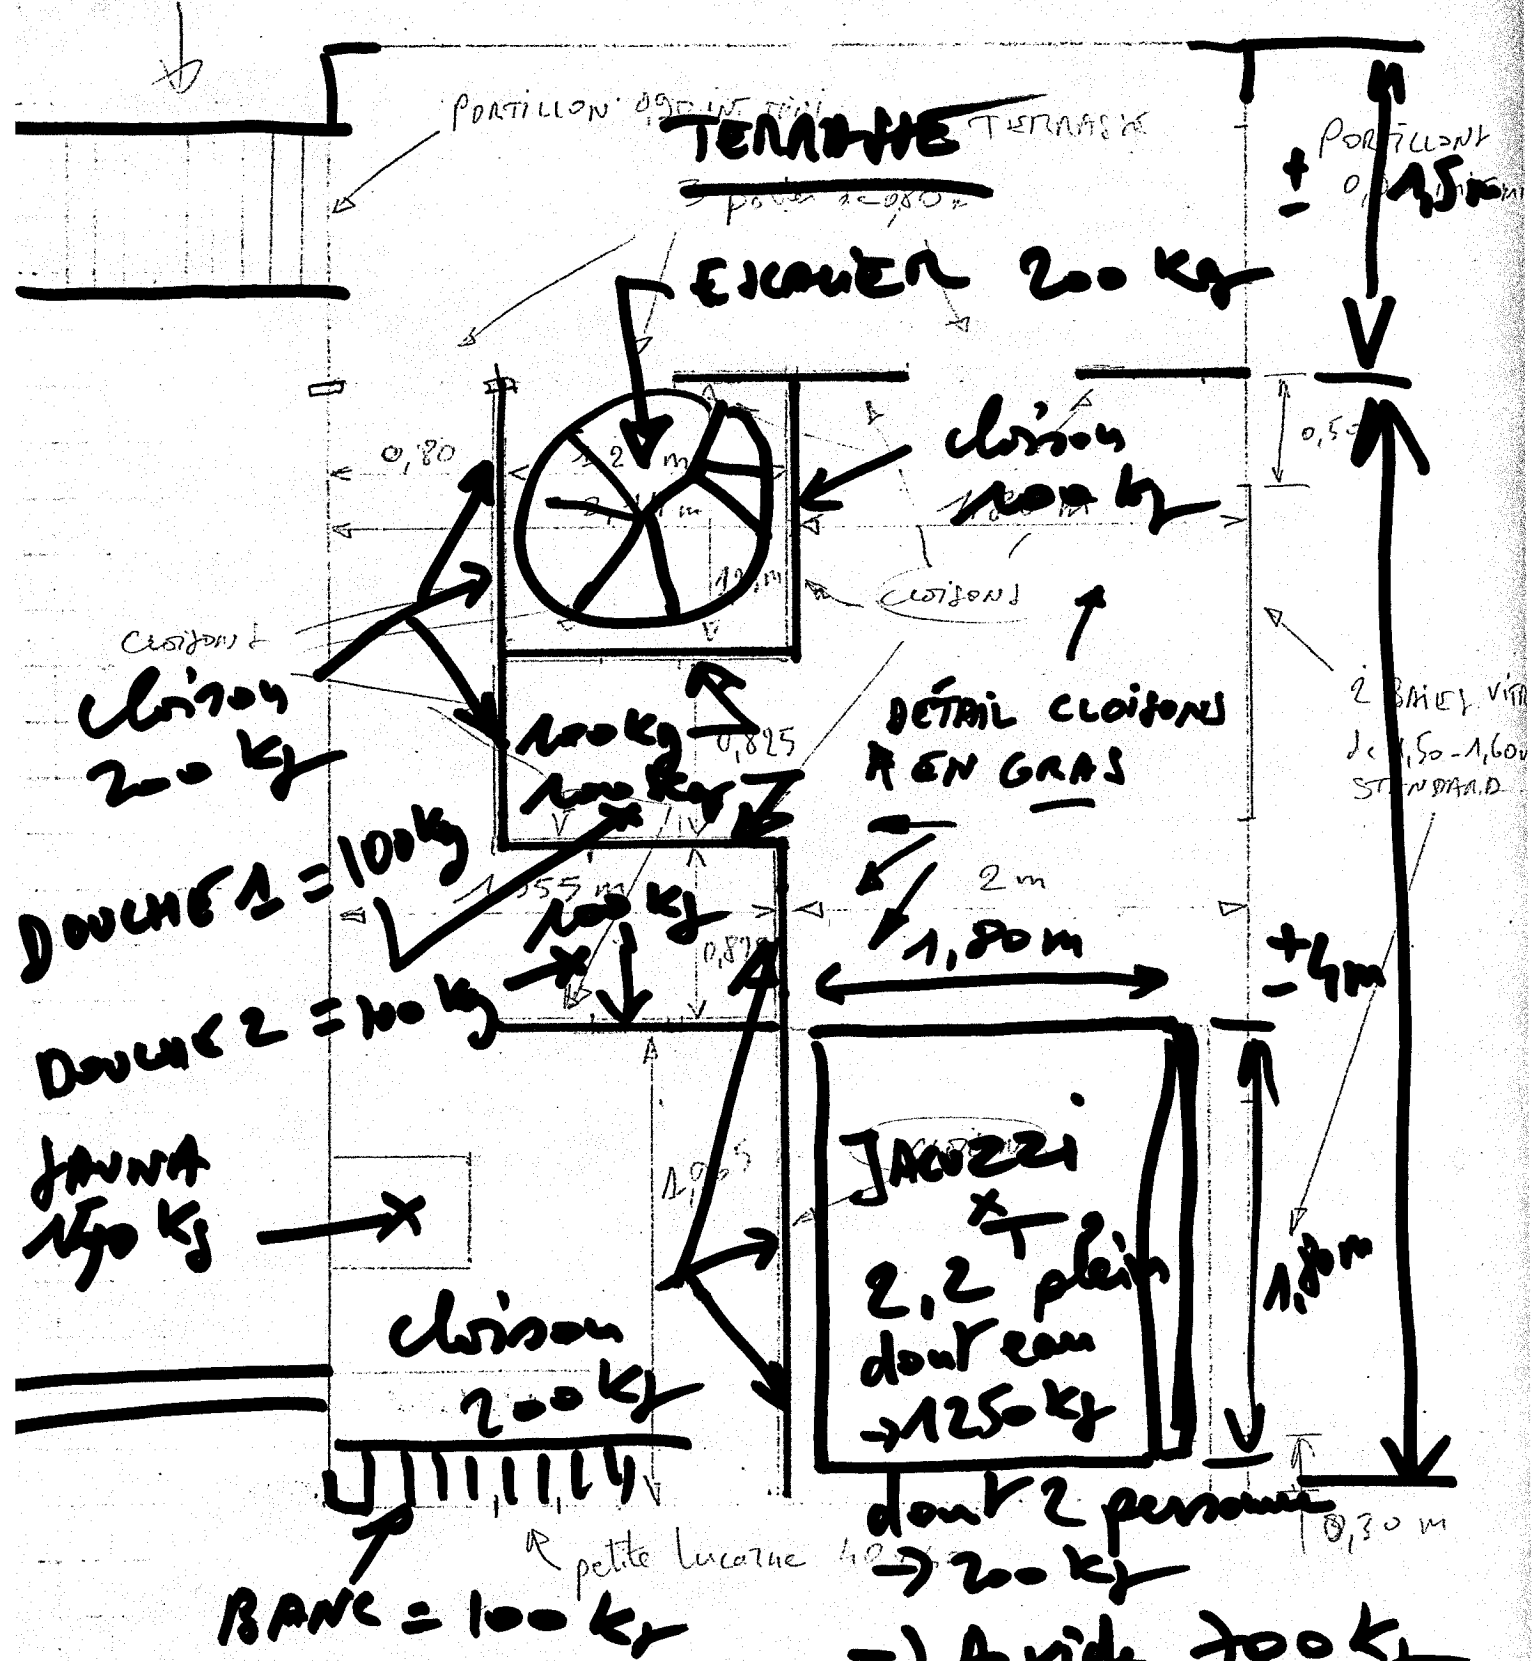 PORTILLON
TERRASSE
TERRASSE
PORTILLONS
±
1,5 m
ESCALIER 200 Kg
0,80
cloison
100 kg
0,50
CLOISONS
CLOISONS
cloison
200 Kg
100 Kg
0,825
100 Kg
DÉTAIL CLOISONS
EN GRAS
2 BAIES VIT
de 1,50-1,60
STANDARD
DOUCHE 1 = 100 Kg
2 m
100 Kg
1,80 m
± 4 m
DOUCHE 2 = 100 Kg
SAUNA
JACUZZI
2,2 T plein
1,80 m
dont eau
→ 1250 Kg
cloison
200 Kg
dont 2 personne
→ 200 Kg
0,30 m
petite lucarne
BANC = 100 Kg
→ A vide 700 Kg